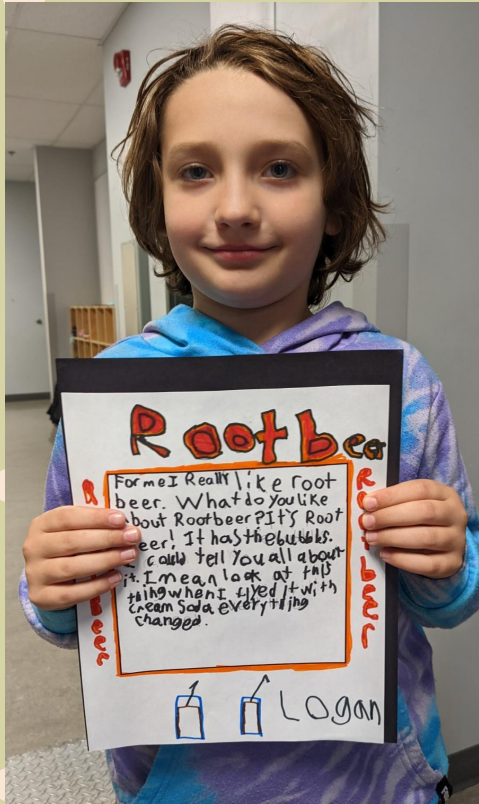 Rootbeer
For me I Really like root
beer. What do you like
about Rootbeer? It's Root
eer! It has the bubbls.
I could tell you all about
it. I mean look at this
thing when I tiyed it with
cream soda everything
changed.
Rootbeer
Logan